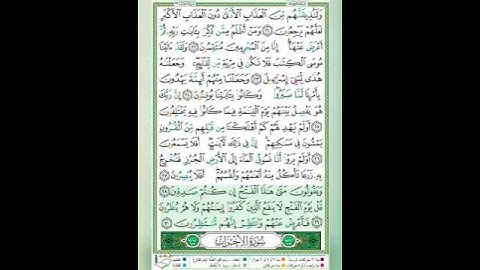 وَلَنُذِيقَنَّهُم مِّنَ الْعَذَابِ الْأَدْنَىٰ دُونَ الْعَذَابِ الْأَكْبَرِ
لَعَلَّهُمْ يَرْجِعُونَ ٢١ وَمَنْ أَظْلَمُ مِمَّن ذُكِّرَ بِآيَاتِ رَبِّهِ ثُمَّ
أَعْرَضَ عَنْهَا إِنَّا مِنَ الْمُجْرِمِينَ مُنتَقِمُونَ ٢٢ وَلَقَدْ آتَيْنَا
مُوسَى الْكِتَابَ فَلَا تَكُن فِي مِرْيَةٍ مِّن لِّقَائِهِ وَجَعَلْنَاهُ
هُدًى لِّبَنِي إِسْرَائِيلَ ٢٣ وَجَعَلْنَا مِنْهُمْ أَئِمَّةً يَهْدُونَ
بِأَمْرِنَا لَمَّا صَبَرُوا وَكَانُوا بِآيَاتِنَا يُوقِنُونَ ٢٤ إِنَّ رَبَّكَ
هُوَ يَفْصِلُ بَيْنَهُمْ يَوْمَ الْقِيَامَةِ فِيمَا كَانُوا فِيهِ يَخْتَلِفُونَ
٢٥ أَوَلَمْ يَهْدِ لَهُمْ كَمْ أَهْلَكْنَا مِن قَبْلِهِم مِّنَ الْقُرُونِ
يَمْشُونَ فِي مَسَاكِنِهِمْ إِنَّ فِي ذَٰلِكَ لَآيَاتٍ أَفَلَا يَسْمَعُونَ
٢٦ أَوَلَمْ يَرَوْا أَنَّا نَسُوقُ الْمَاءَ إِلَى الْأَرْضِ الْجُرُزِ فَنُخْرِجُ
بِهِ زَرْعًا تَأْكُلُ مِنْهُ أَنْعَامُهُمْ وَأَنفُسُهُمْ أَفَلَا يُبْصِرُونَ ٢٧
وَيَقُولُونَ مَتَىٰ هَٰذَا الْفَتْحُ إِن كُنتُمْ صَادِقِينَ ٢٨
قُلْ يَوْمَ الْفَتْحِ لَا يَنفَعُ الَّذِينَ كَفَرُوا إِيمَانُهُمْ وَلَا هُمْ يُنظَرُونَ
٢٩ فَأَعْرِضْ عَنْهُمْ وَانتَظِرْ إِنَّهُم مُّنتَظِرُونَ ٣٠
سُورَةُ الْأَحْزَابِ